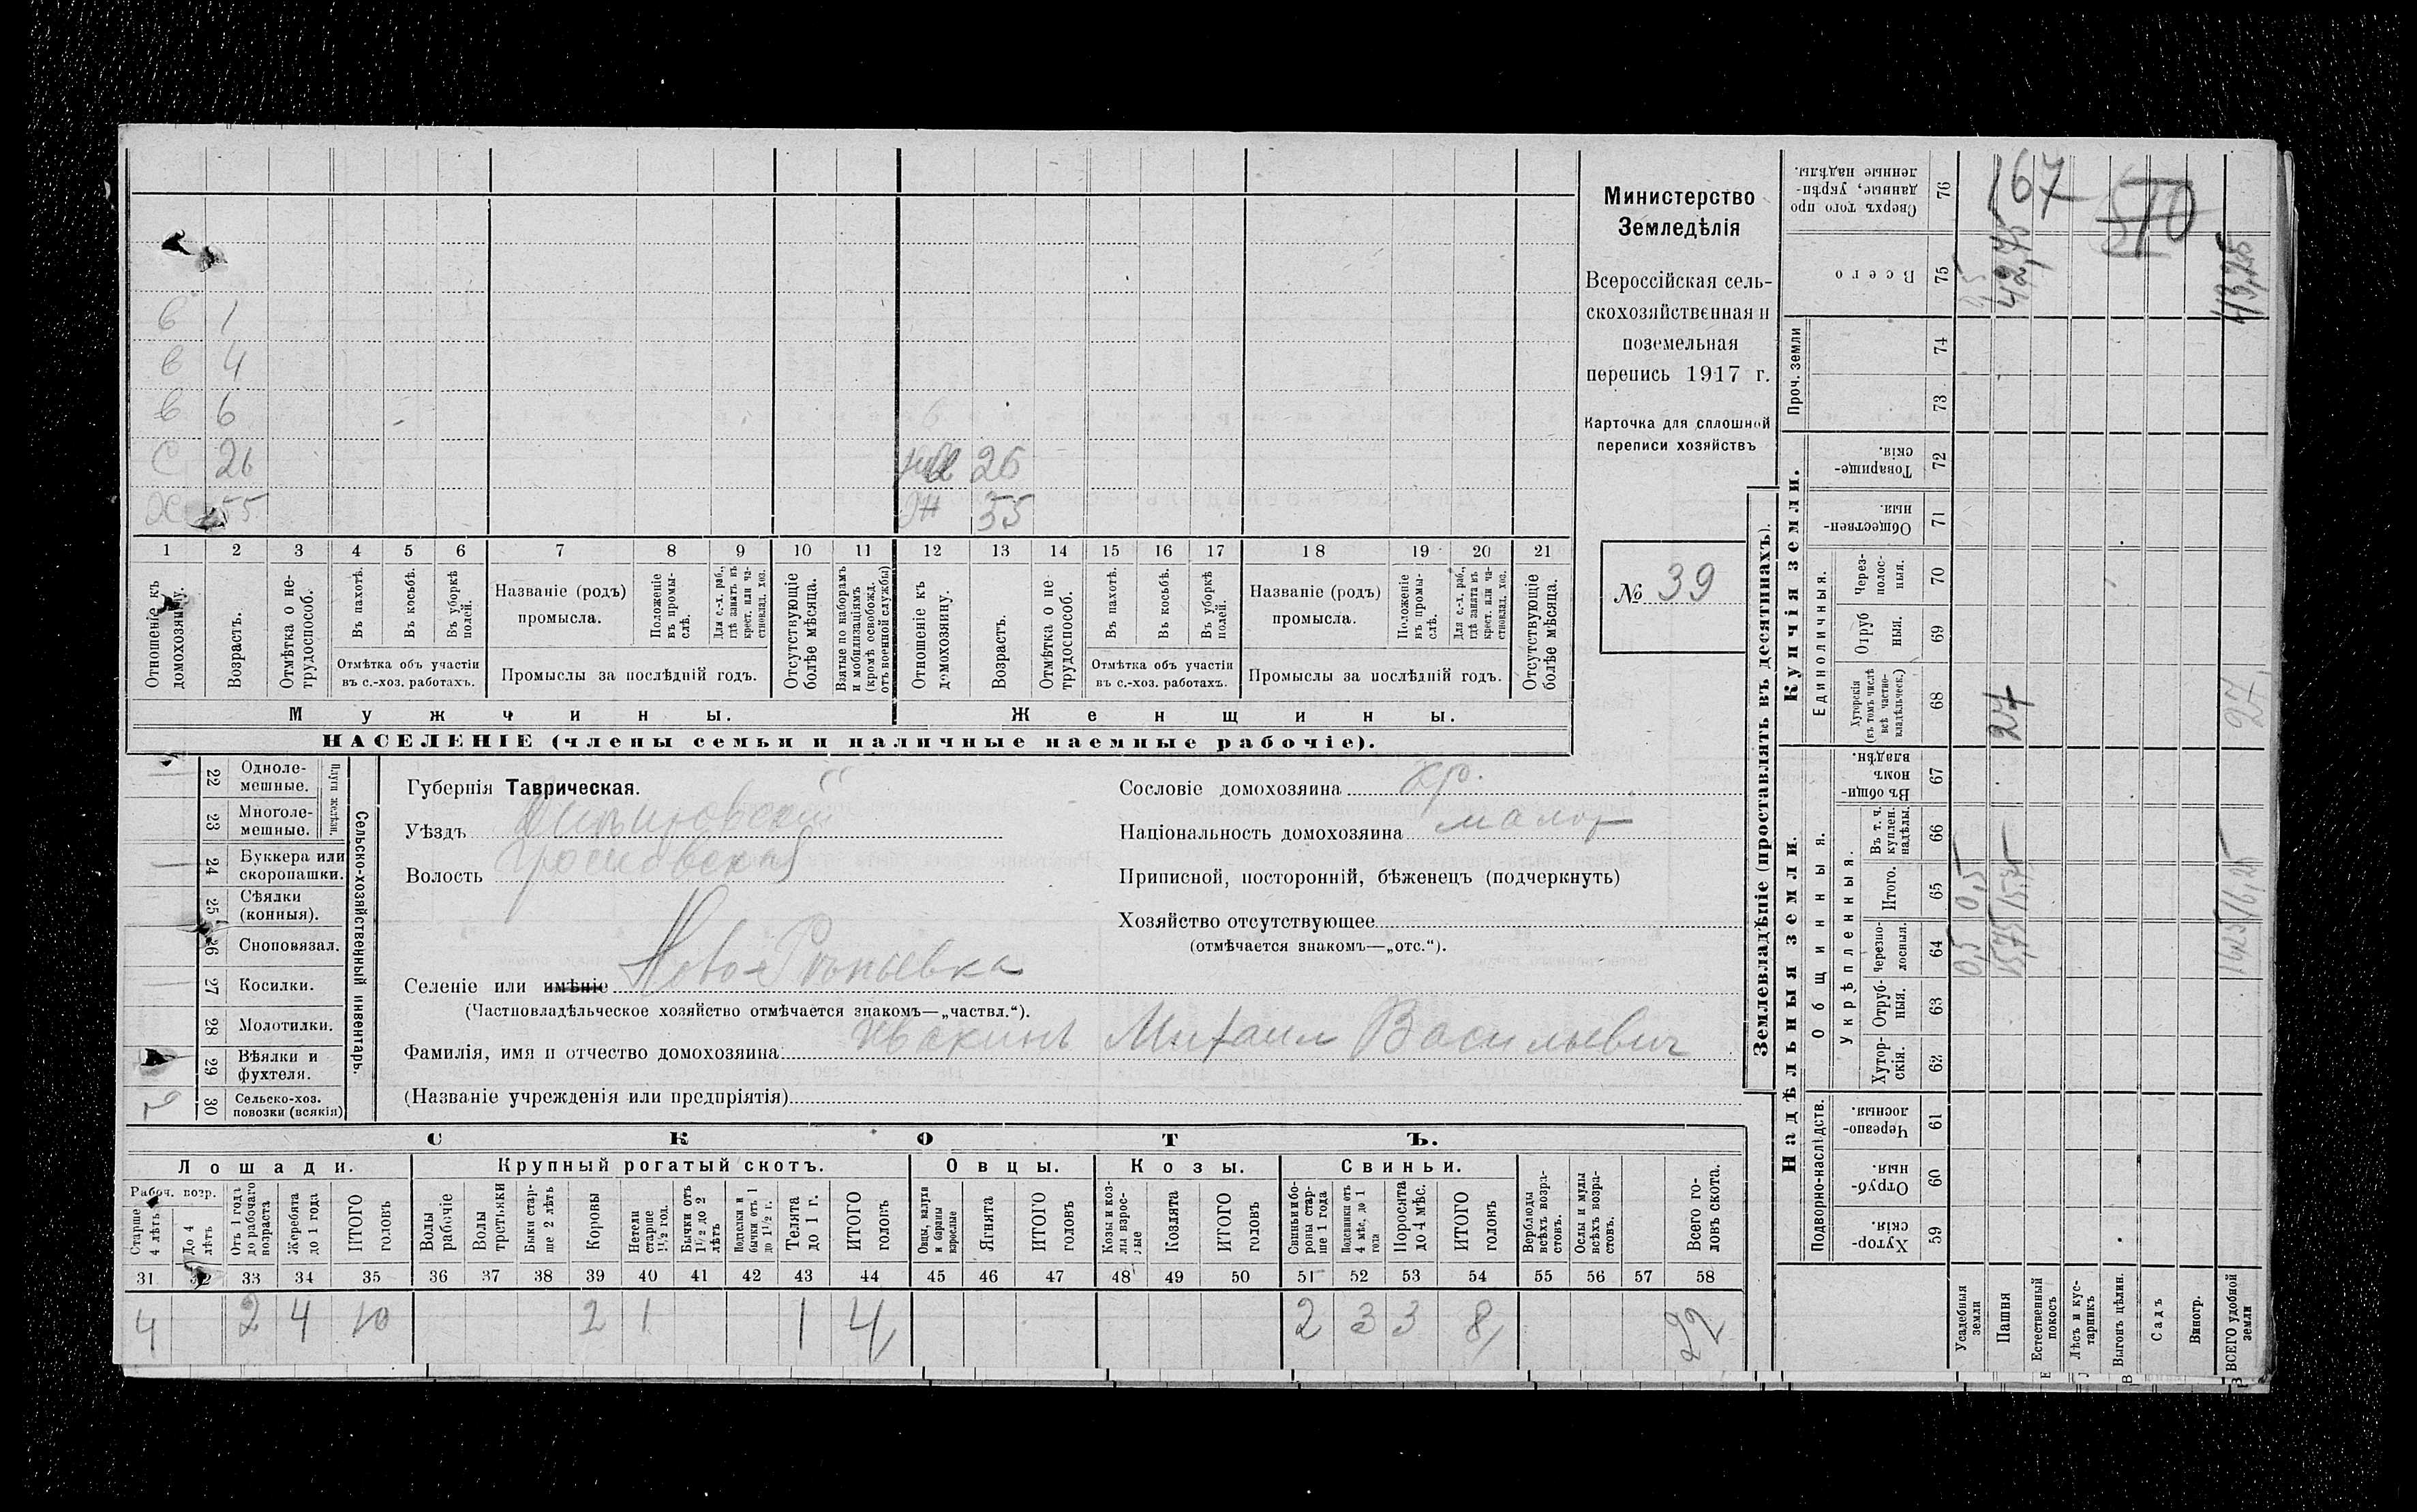 в 1
в 4
в 6
С 26
26
Х 55
Ж 55
1 2 3 4 5 6 7 8 9 10 11 12 13 14 15 16 17 18 19 20 21
Отношеніе къ домохозяину.
Возрастъ.
Отмѣтка о не-трудоспособ.
Въ пахотѣ.
Въ косьбѣ.
Въ уборкѣ полей.
Отмѣтка объ участіи въ с.-хоз. работахъ.
Названіе (родъ) промысла.
Положеніе въ промы-слѣ.
Для с.-х. раб., гдѣ занятъ въ крест. или ча-стновлад. хоз.
Промыслы за послѣдній годъ.
Отсутствующіе болѣе мѣсяца.
Взятые по наборамъ и мобилизаціямъ (кромѣ освобожд. отъ военной службы)
Отношеніе къ домохозяину.
Возрастъ.
Отмѣтка о не трудоспособ.
Въ пахотѣ.
Въ косьбѣ.
Въ уборкѣ полей.
Отмѣтка объ участіи въ с.-хоз. работахъ.
Названіе (родъ) промысла.
Положеніе въ промы-слѣ.
Для с.-х. раб., гдѣ занята въ крест. или ча-стновлад. хоз.
Промыслы за послѣдній годъ.
Отсутствующіе болѣе мѣсяца.
Мужчины.
Женщины.
НАСЕЛЕНІЕ (члены семьи и наличные наемные рабочіе).
Министерство
Земледѣлія
Всероссійская сель-
скохозяйственная и
поземельная
перепись 1917 г.
Карточка для сплошной
переписи хозяйствъ
№ 39
22 Одноле-мешные.
23 Многоле-мешные.
Плуги желѣзн.
24 Буккера или скоропашки.
25 Сѣялки (конныя).
26 Сноповязал.
27 Косилки.
28 Молотилки.
29 Вѣялки и фухтеля.
30 Сельско-хоз. повозки (всякія)
Сельско-хозяйственный инвентарь.
Губернія Таврическая.
Уѣздъ
Волость
Селеніе или имѣніе
(Частновладѣльческое хозяйство отмѣчается знакомъ—„частвл.“).
Фамилія, имя и отчество домохозяина Ивакинъ Михаил Васильевич
(Названіе учрежденія или предпріятія)
Сословіе домохозяина кр.
Національность домохозяина малор
Приписной, посторонній, бѣженецъ (подчеркнуть)
Хозяйство отсутствующее
(отмѣчается знакомъ—„отс.“).
СКОТЪ.
Лошади. Крупный рогатый скотъ. Овцы. Козы. Свиньи.
Рабоч. возр.
Старше 4 лѣтъ
До 4 лѣтъ
Отъ 1 года до рабочаго возраста
Жеребята до 1 года
ИТОГО головъ
Волы рабочіе
Волы третьяки
Быки стар-ше 2 лѣтъ
Коровы
Нетели старше 1½ год.
Бычки отъ 1½ до 2 лѣтъ
Подтелки и бычки отъ 1 до 1½ г.
Телята до 1 г.
ИТОГО головъ
Овцы, валухи и бараны взрослые
Ягнята
ИТОГО головъ
Козы и коз-лы взрос-лые
Козлята
ИТОГО головъ
Свиньи и бо-ровы стар-ше 1 года
Подсвинки отъ 4 мѣс. до 1 года
Поросята до 4 мѣс.
ИТОГО головъ
Верблюды всѣхъ возра-стовъ.
Ослы и мулы всѣхъ возра-стовъ.
Всего го-ловъ скота.
31 32 33 34 35 36 37 38 39 40 41 42 43 44 45 46 47 48 49 50 51 52 53 54 55 56 57 58
4 2 4 10 2 1 1 4 2 3 3 8 22
Землевладѣніе (проставлять въ десятинахъ).
Надѣльныя земли.
Купчія земли.
Проч. земли
Подворно-наслѣдств.
Общинныя.
Укрѣпленныя.
Единоличныя.
59 Хутор-скія.
60 Отруб-ныя.
61 Черезпо-лосныя.
62 Хутор-скія.
63 Отруб-ныя.
64 Черезпо-лосныя.
65 Итого.
66 Въ т. ч. куплен. надѣлы.
67 Въ общи-номъ владѣн.
68 Хуторскія (въ томъ числѣ всѣ частно-владѣльческ.)
69 Отруб ныя.
70 Через-полос-ныя.
71 Обществен-ныя.
72 Товарище-скія.
73
74
75 Всего
76 Сверхъ того про данные, укрѣп-ленные надѣлы.
Усадебныя земли 0,5 0,5
Пашня 15,75 15,75 27 42,75
Естественный покосъ
Лѣсъ и кус-тарникъ
Выгонъ цѣлин.
Садъ
Виногр.
ВСЕГО удобной земли 16,25 16,25 27 43,25
167